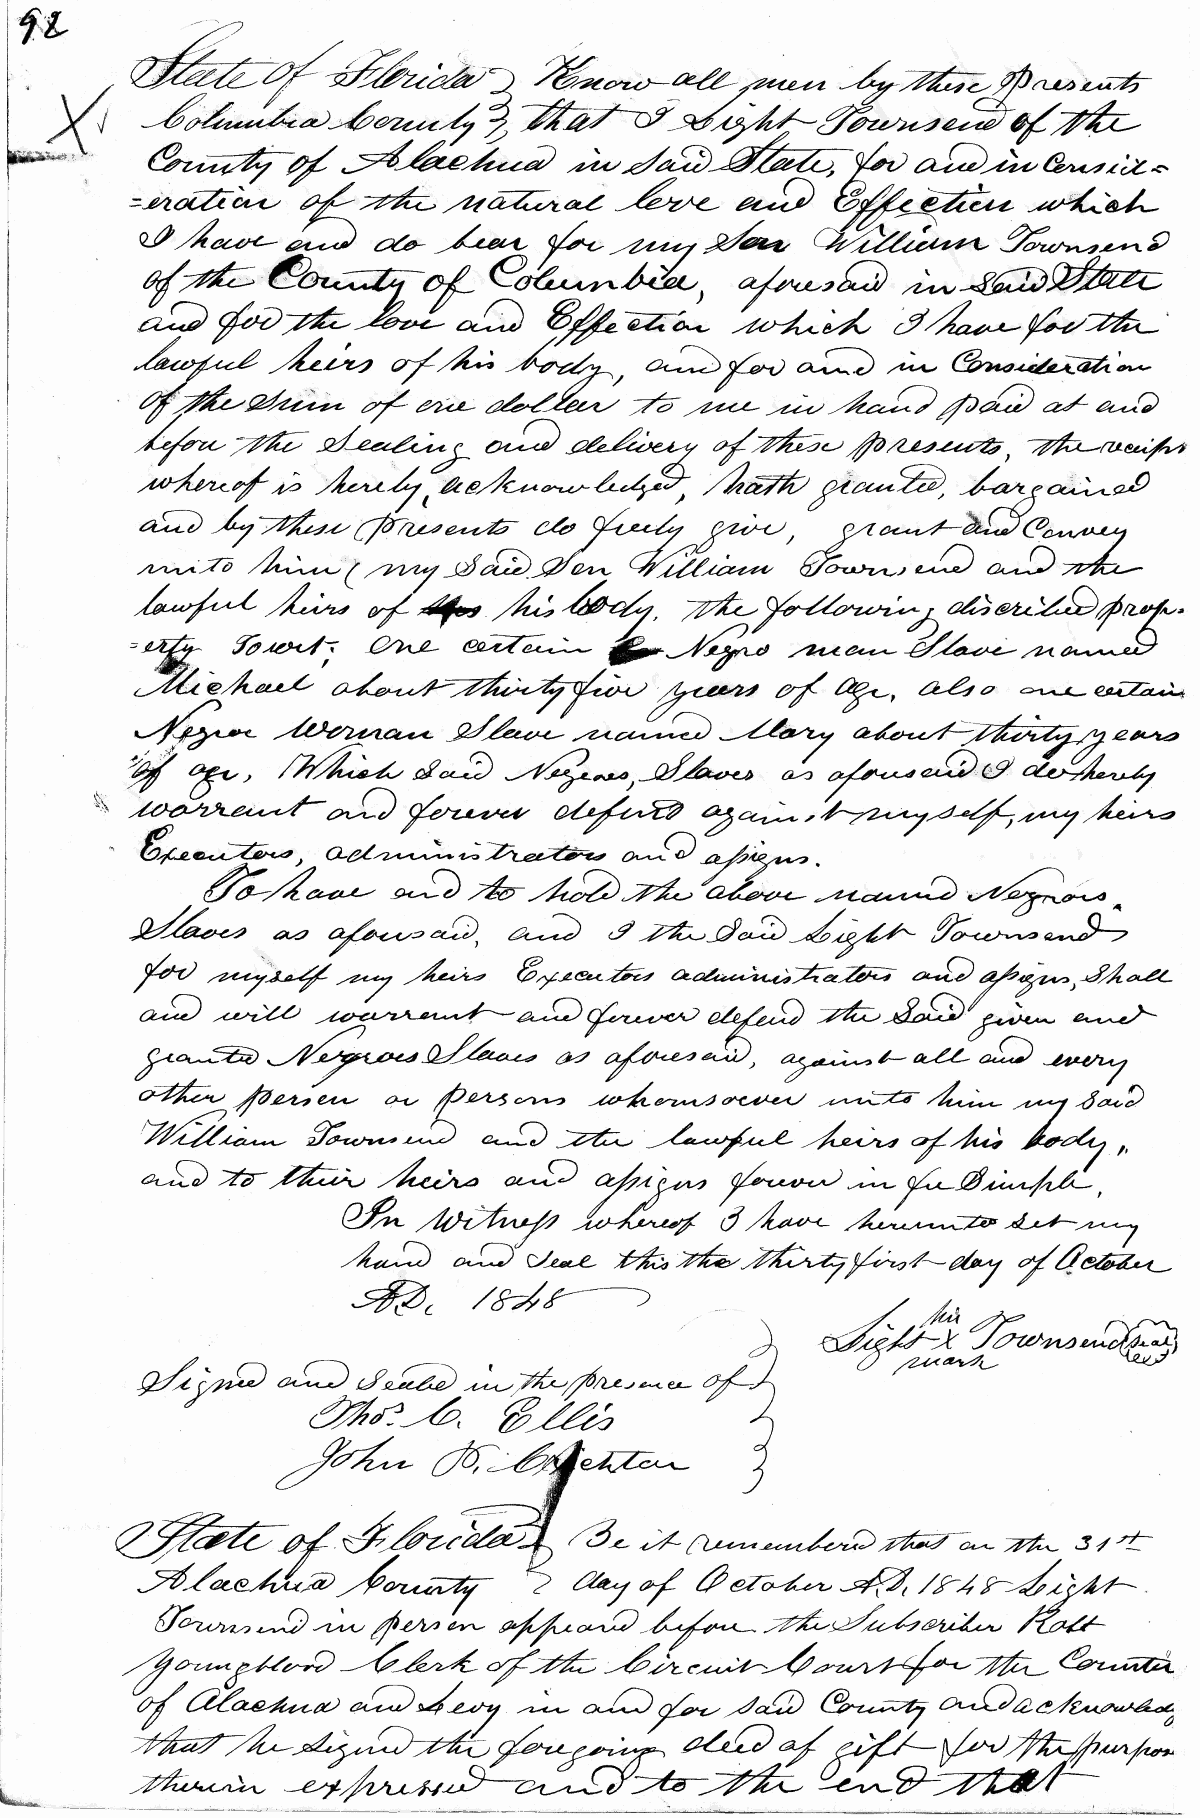 92
State of Florida } Know all men by these Presents
X Columbia County }, that I Light Townsend of the
County of Alachua in Said State, for and in Consid=
=eration of the natural love and Effection which
I have and do bear for my Son William Townsend
of the County of Columbia, aforesaid in Said State
and for the love and Effection which I have for the
lawful heirs of his body, and for and in Consideration
of the Sum of one dollar to me in hand paid at and
before the Sealing and delivery of these presents, the receipt
whereof is hereby acknowledged, hath granted, bargained
and by these presents do freely give, grant and Convey
unto him ( my Said Son William Townsend and the
lawful heirs of his body, the following discribed prop-
=erty Towit; One certain Negro man Slave named
Michael about thirty five years of age, also one certain
Negroe Woman Slave named Mary about thirty years
of age, Which Said Negroes, Slaves as aforesaid I do hereby
warrant and forever defend against myself, my heirs
Executors, administrators and assigns.
To have and to hold the above named Negroes
Slaves as aforesaid, and I the Said Light Townsend
for myself my heirs Executors administrators and assigns, Shall
and will warrant and forever defend the Said given and
granted Negroes Slaves as aforesaid, against all and every
other person or persons whomsoever unto him my Said
William Townsend and the lawful heirs of his body,
and to their heirs and assigns forever in fee Simple.
In Witness whereof I have hereunto Set my
hand and Seal this the thirty first day of October
A.D. 1848
his
Light X Townsend (Seal)
mark
Signed and Sealed in the presence of }
Thos. C. Ellis
John
State of Florida } Be it remembered that on the 31st
Alachua County } day of October A.D. 1848 Light
Townsend in person appeared before the Subscriber Robt
Youngblood Clerk of the Circuit Court for the Counties
of Alachua and Levy in and for said County and acknowledg
that he Signed the foregoing deed of gift for the purpose
therein expressed and to the end that